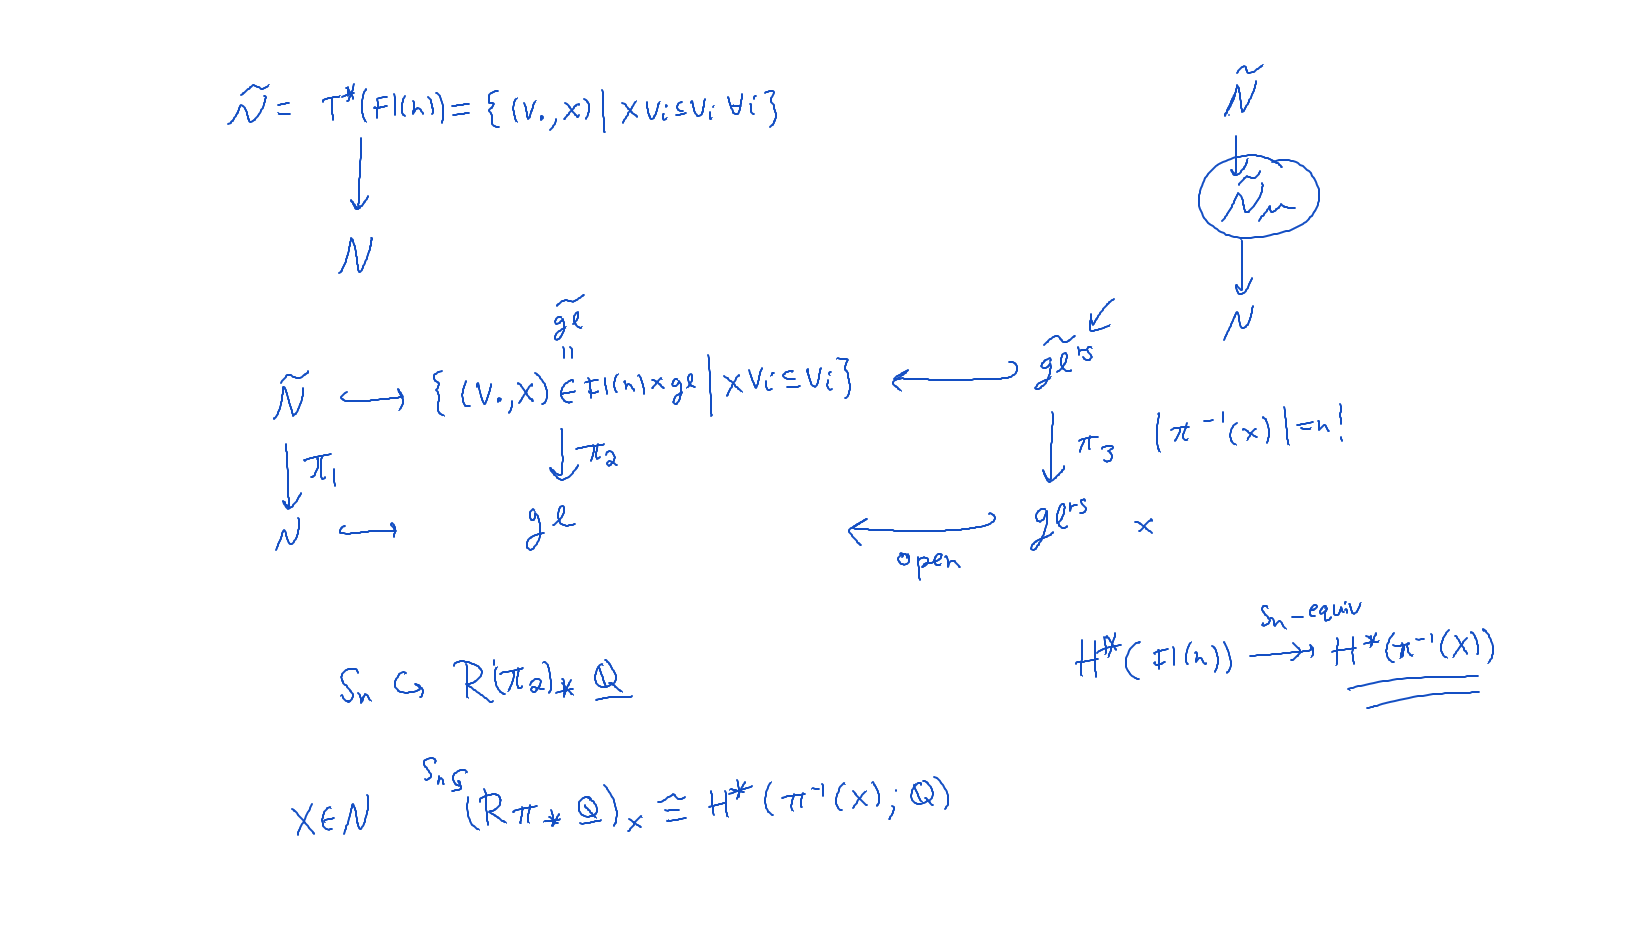 Ñ = T*(Fl(n)) = { (V•, X) | XVi ⊆ Vi ∀i }
↓
N
Ñ
↓
Ñμ
↓
N
g̃l
=
Ñ ↪ { (V•, X) ∈ Fl(n) × gl | XVi ⊆ Vi } ↩ g̃l^rs
↓ π₁ ↓ π₂ ↓ π₃ |π⁻¹(x)| = n!
N ↪ gl ↩ gl^rs x
open
Sn ↻ R(π₂)* ℚ
H*(Fl(n)) ↠ H*(π⁻¹(X))
Sn-equiv
Sn ↻
X ∈ N (Rπ* ℚ)x ≅ H*(π⁻¹(x); ℚ)